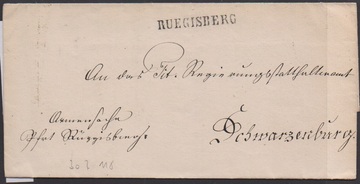 RUEGISBERG
An das Tit. Regierungsstatthalteramt
Armensache
Pfrt Rüggisberg.
Schwarzenburg.